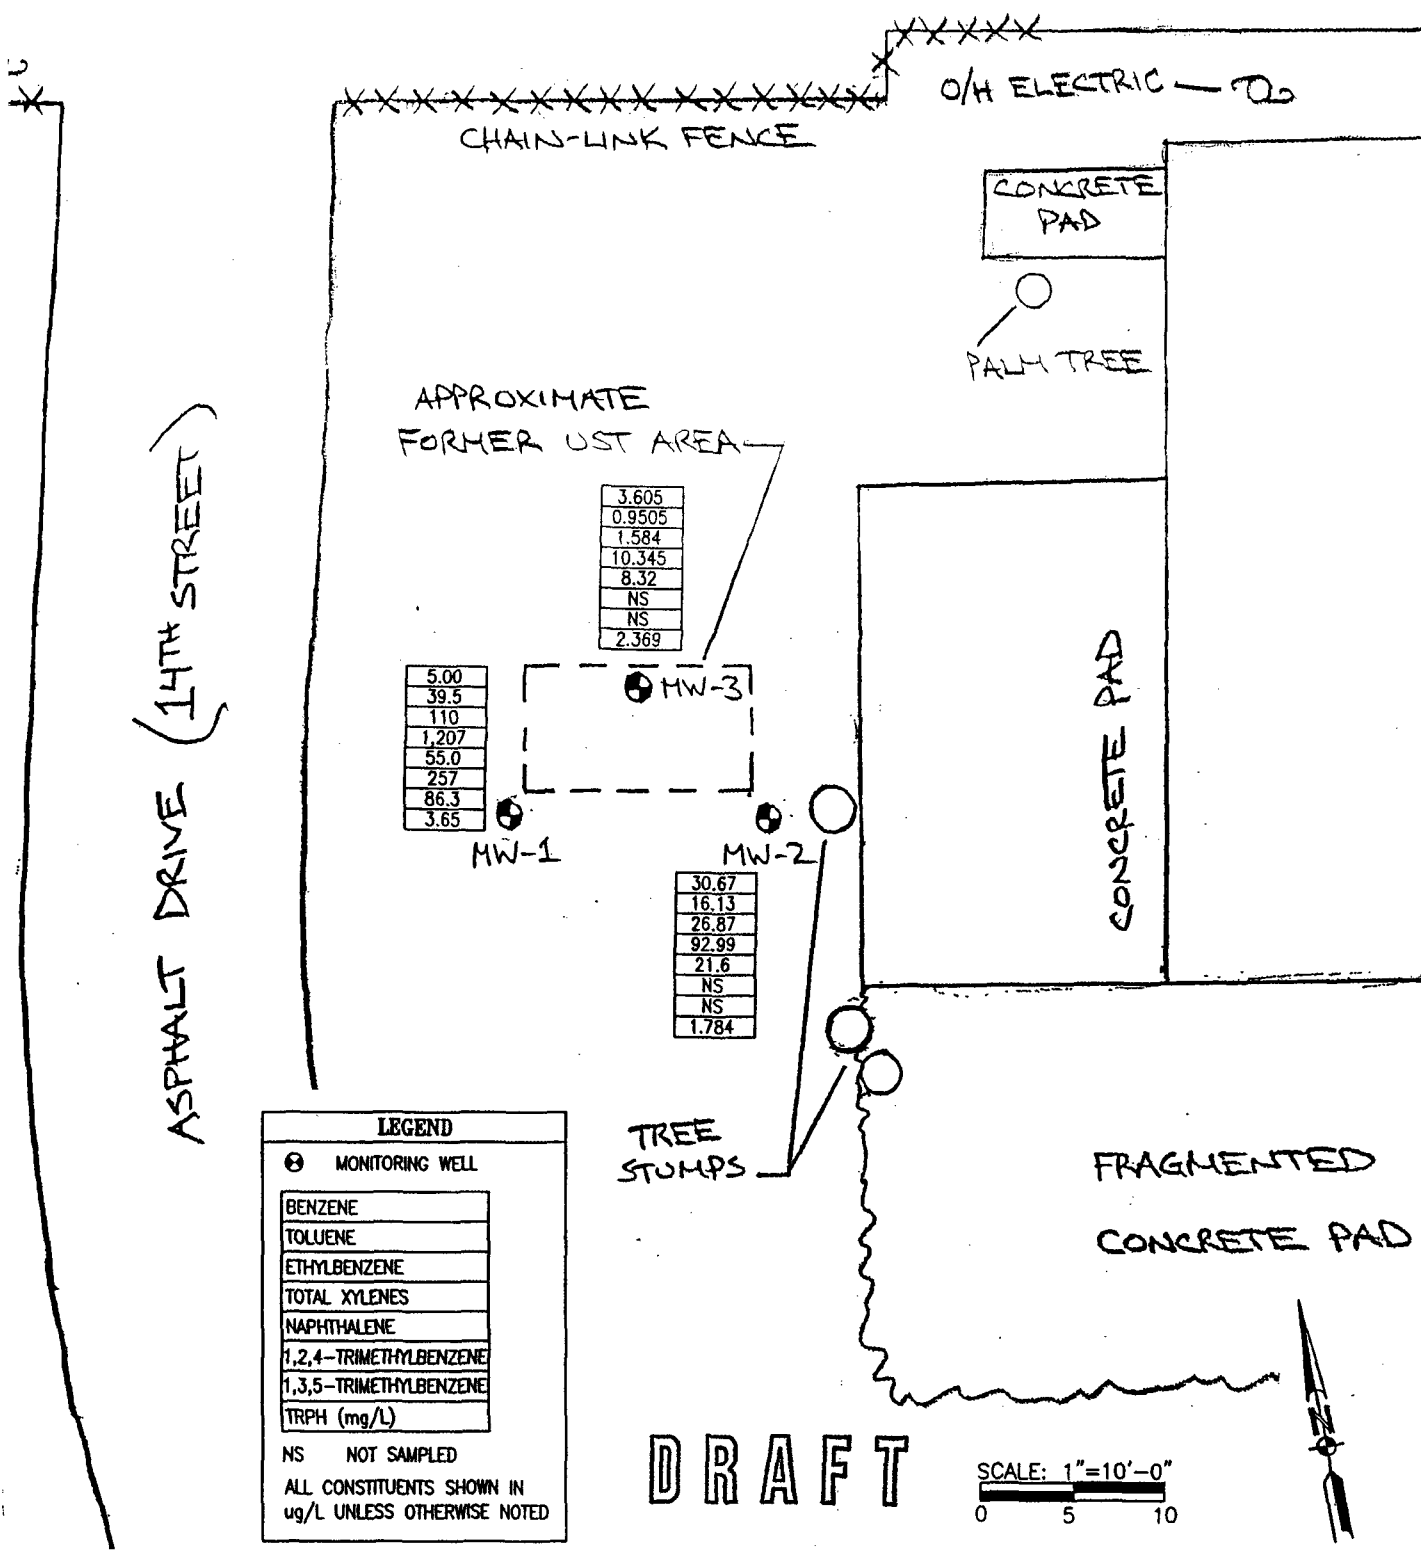 O/H ELECTRIC
CHAIN-LINK FENCE
CONCRETE
PAD
PALM TREE
APPROXIMATE
FORMER UST AREA
ASPHALT DRIVE (14TH STREET)
3.605
0.9505
1.584
10.345
8.32
NS
NS
2.369
MW-3
5.00
39.5
110
1,207
55.0
257
86.3
3.65
MW-1
MW-2
30.67
16.13
26.87
92.99
21.6
NS
NS
1.784
CONCRETE PAD
TREE
STUMPS
FRAGMENTED
CONCRETE PAD
LEGEND
MONITORING WELL
BENZENE
TOLUENE
ETHYLBENZENE
TOTAL XYLENES
NAPHTHALENE
1,2,4-TRIMETHYLBENZENE
1,3,5-TRIMETHYLBENZENE
TRPH (mg/L)
NS NOT SAMPLED
ALL CONSTITUENTS SHOWN IN
ug/L UNLESS OTHERWISE NOTED
DRAFT
SCALE: 1"=10'-0"
0 5 10
N